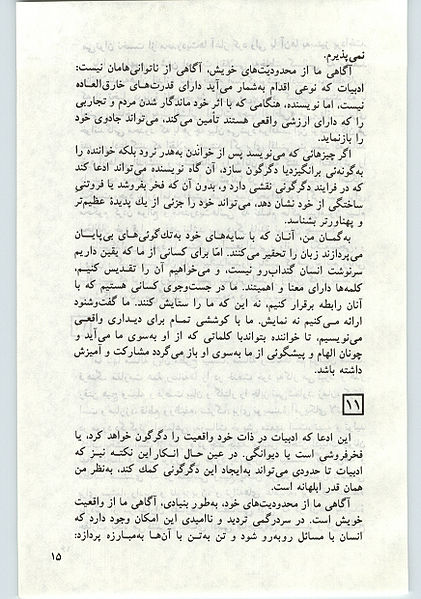 نمی‌پذیرم.
آگاهی ما از محدودیت‌های خویش، آگاهی از ناتوانی‌هامان نیست:
ادبیات که نوعی اقدام به‌شمار می‌آید دارای قدرت‌های خارق‌العاده
نیست، اما نویسنده، هنگامی که با اثر خود ماندگار شدن مردم و تجاربی
را که دارای ارزشی واقعی هستند تأمین می‌کند، می‌تواند جادوی خود
را بازنماید.
اگر چیزهائی که می‌نویسد پس از خواندن به‌هدر نرود بلکه خواننده را
به‌گونه‌ئی برانگیزدیا دگرگون سازد، آن گاه نویسنده می‌تواند ادعا کند
که در فرایند دگرگونی نقشی دارد و، بدون آن که فخر بفروشد یا فروتنی
ساختگی از خود نشان دهد، می‌تواند خود را جزئی از یك پدیدهٔ عظیم‌تر
و پهناورتر بشناسد.
به‌گمان من، آنـان که با سایه‌های خود به‌تك‌گوئی‌های بی‌پایـان
می‌پردازند زبان را تحقیر می‌کنند. امّا برای کسانی از ما که یقین داریم
سرنوشت انسان گنداب‌رو نیست، و می‌خواهیم آن را تقدیـس کنیـم،
کلمه‌ها دارای معنا و اهمیتند. ما در جست‌وجوی کسانی هستیم که با
آنان رابطه برقرار کنیم، نه این که ما را ستایش کنند. ما گفت‌وشنود
ارائه مـی‌کنیم نه نمایش. ما با کوششی تمـام برای دیـداری واقعـی
می‌نویسیم، تا خواننده بتواندبا کلماتی که از او به‌سوی ما می‌آید و
چونان الهام و پیشگوئی از ما به‌سوی او باز می‌گردد مشارکت و آمیزش
داشته باشد.
۱۱
این ادعا که ادبیات در ذات خود واقعیت را دگرگون خواهد کرد، یا
فخرفروشی است یا دیوانگی. در عین حـال انـکار این نکتـه نیـز که
ادبیات تا حدودی می‌تواند به‌ایجاد این دگرگونی کمك کند، به‌نظر من
همان قدر ابلهانه است.
آگاهی ما از محدودیت‌های خود، به‌طور بنیادی، آگاهی ما از واقعیت
خویش است. در سردرگمی تردید و ناامیدی این امکان وجود دارد که
انسان با مسائل روبه‌رو شود و تن به‌تـن با آن‌ها به‌مبـارزه پردازد:
۱۵